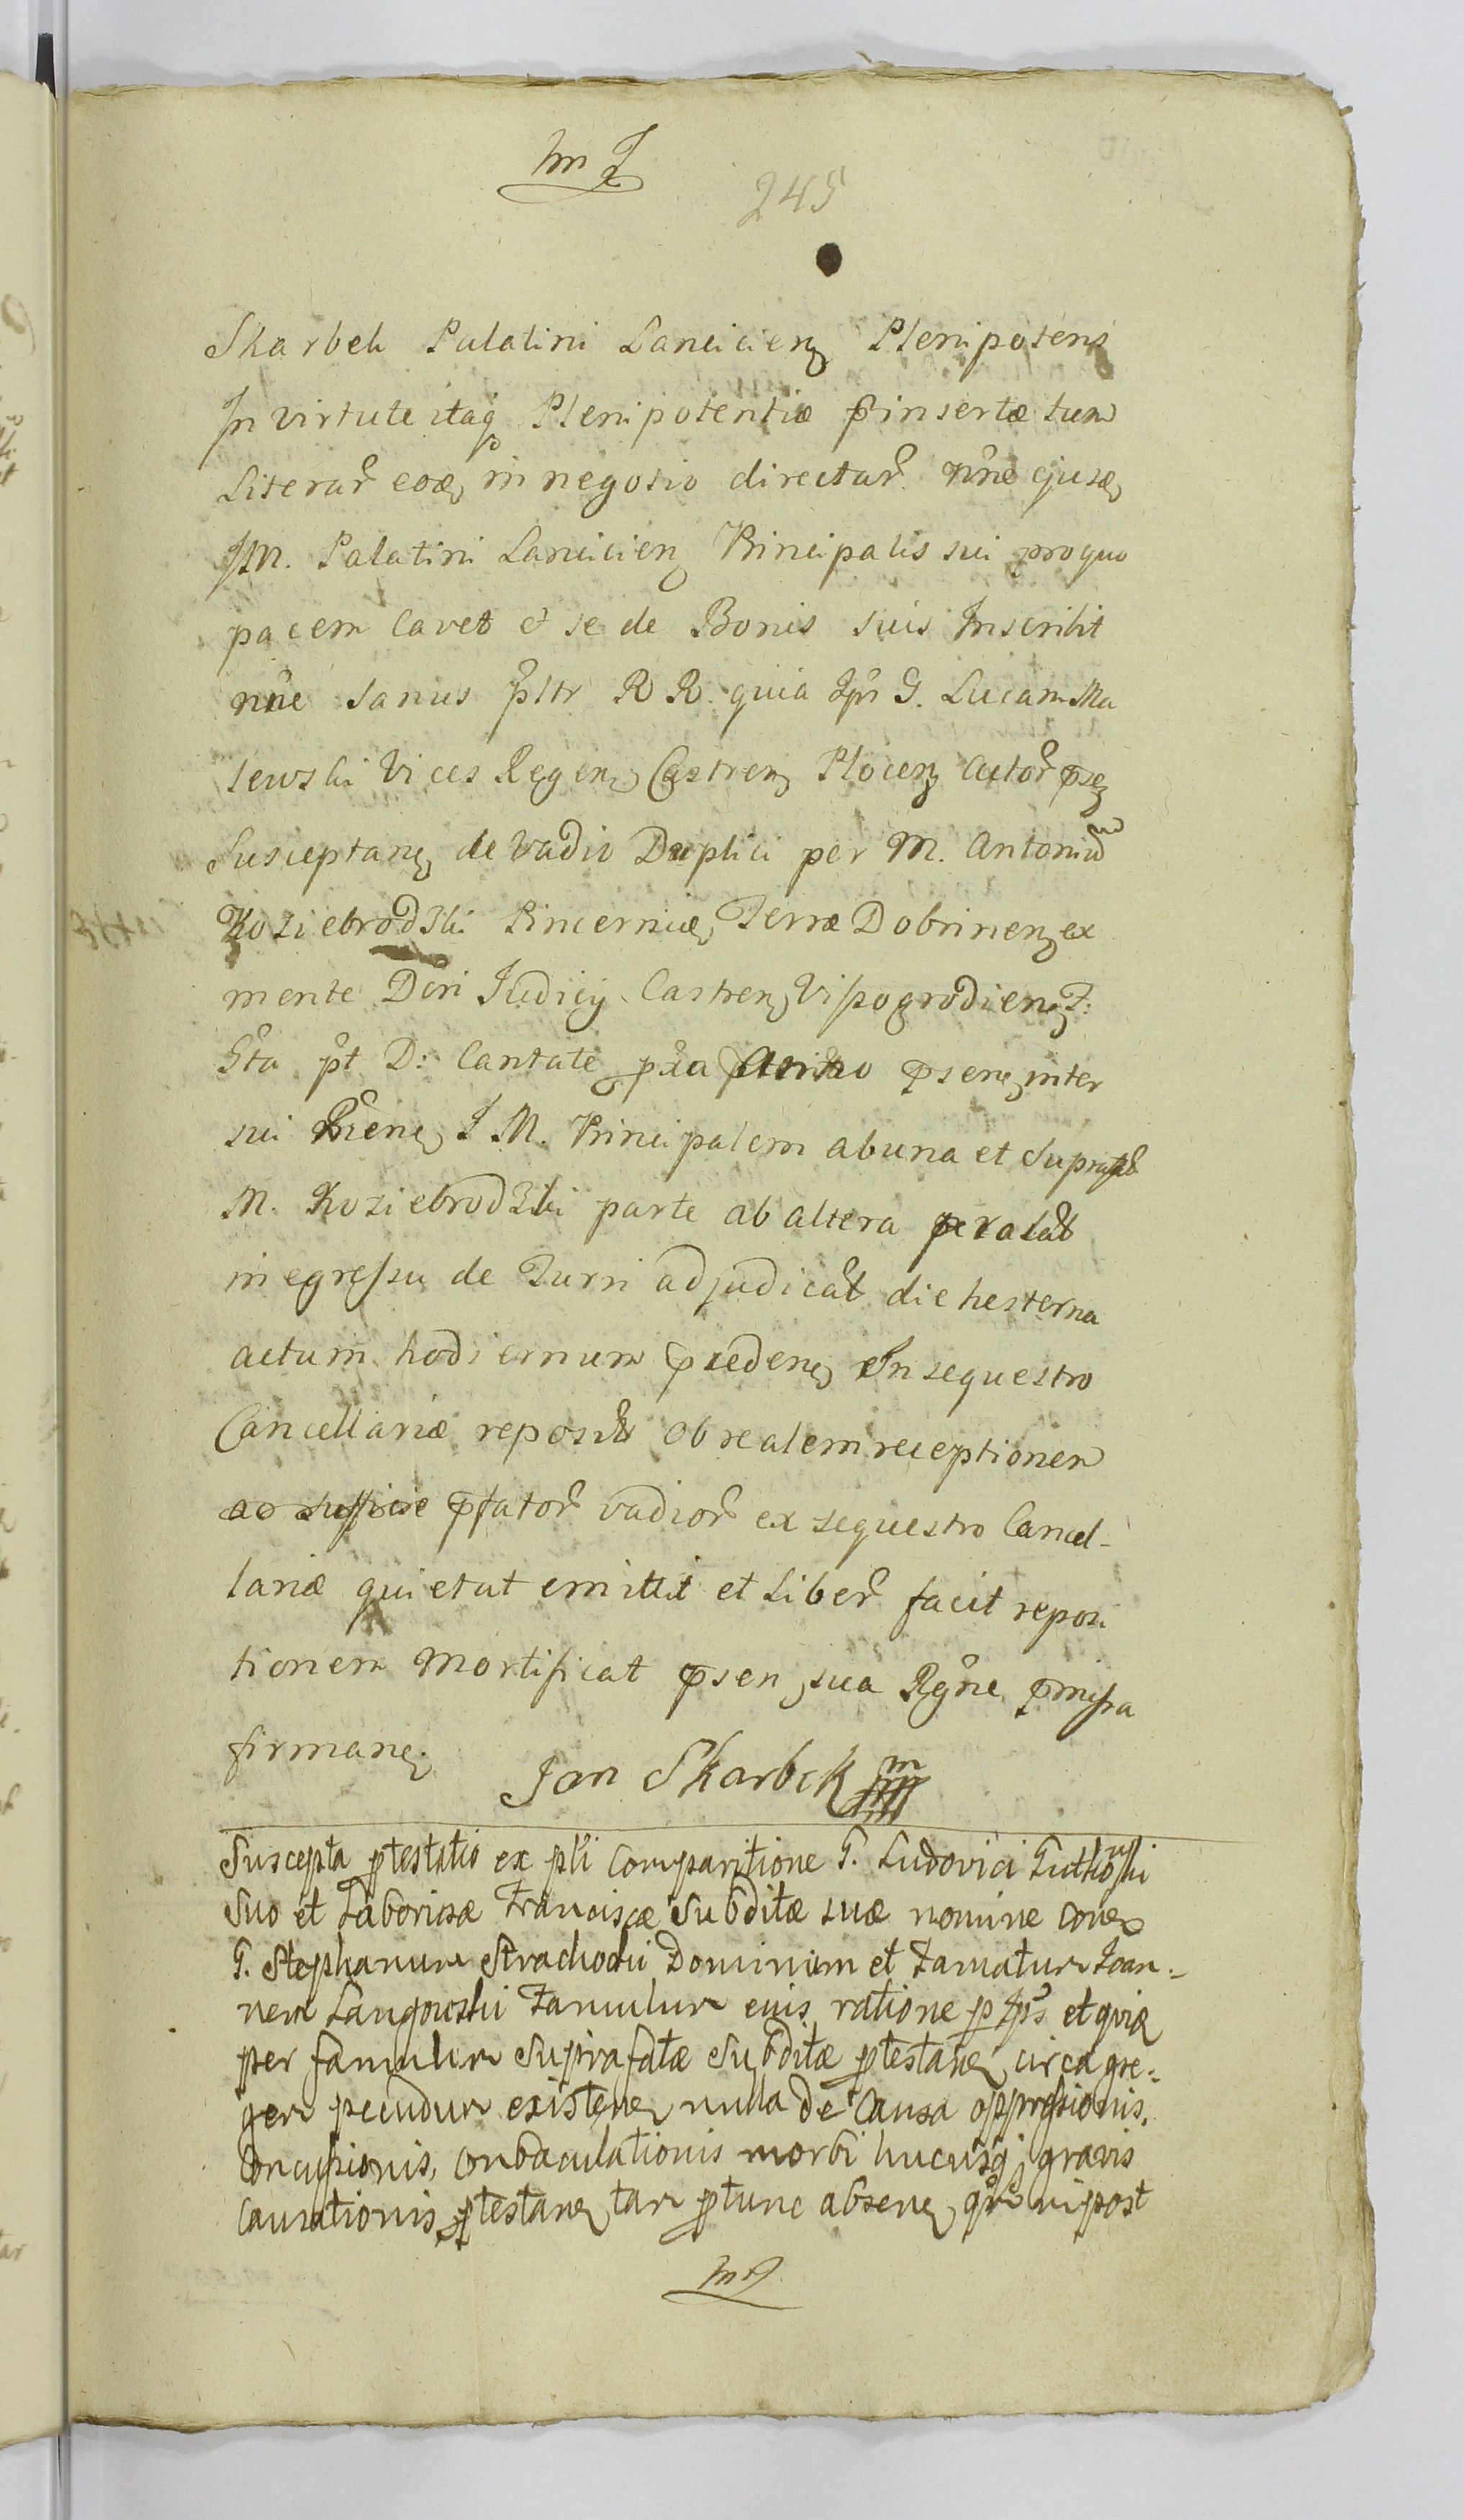 245
Skarbek Palatini Lancicien Plenipotens
In virtute itaq Plenipotentiæ pinsertæ tum
Literar eod in negotio directar nne ejusd
JM. Palatini Lancicien Principalis sui pro quo
pacem Cavet et se de Bonis suis Inscribit
nne sanus R R. quia G. Lucam Ma
lewski Vices Regen Castren Plocen Actor psen
Susceptanę de Vadio Duplici per M. Antoniu
Koziebrodzki Pincernæ Terræ Dobrinen ex
mente Dcri Judicij Castren Vissogrodien F:
pt D: Cantate psen inter
sui JM. Principalem ab una et
M. Koziebrodzki parte ab altera
in egressu de Turri adjudicat die hesterna
actum hodiernum pceden In sequestro
Cancellariæ reposit Ob realem receptionem
pfator vadior ex sequestro Cancel-
lariæ quietat emittit et Liber facit reposi
tionem Mortificat psen sua missa
firman.
Jan Skarbek mp
Suscepta ptestatio ex pli Comparitione G. Ludovici
Suo et Laboriosæ Franciscæ Subditæ suæ nomine
G. Stephanum Dominum et Famatum Joan-
nem Famulum eius ratione et quia
per famulum Suprafatæ Subditæ ptestanę circa gre-
gem pecudum existenę nulla de Causa oppressionis,
Concussionis, Conbaculationis morbi hucusq gravis
Causationis ptestanę ptunc absenę post